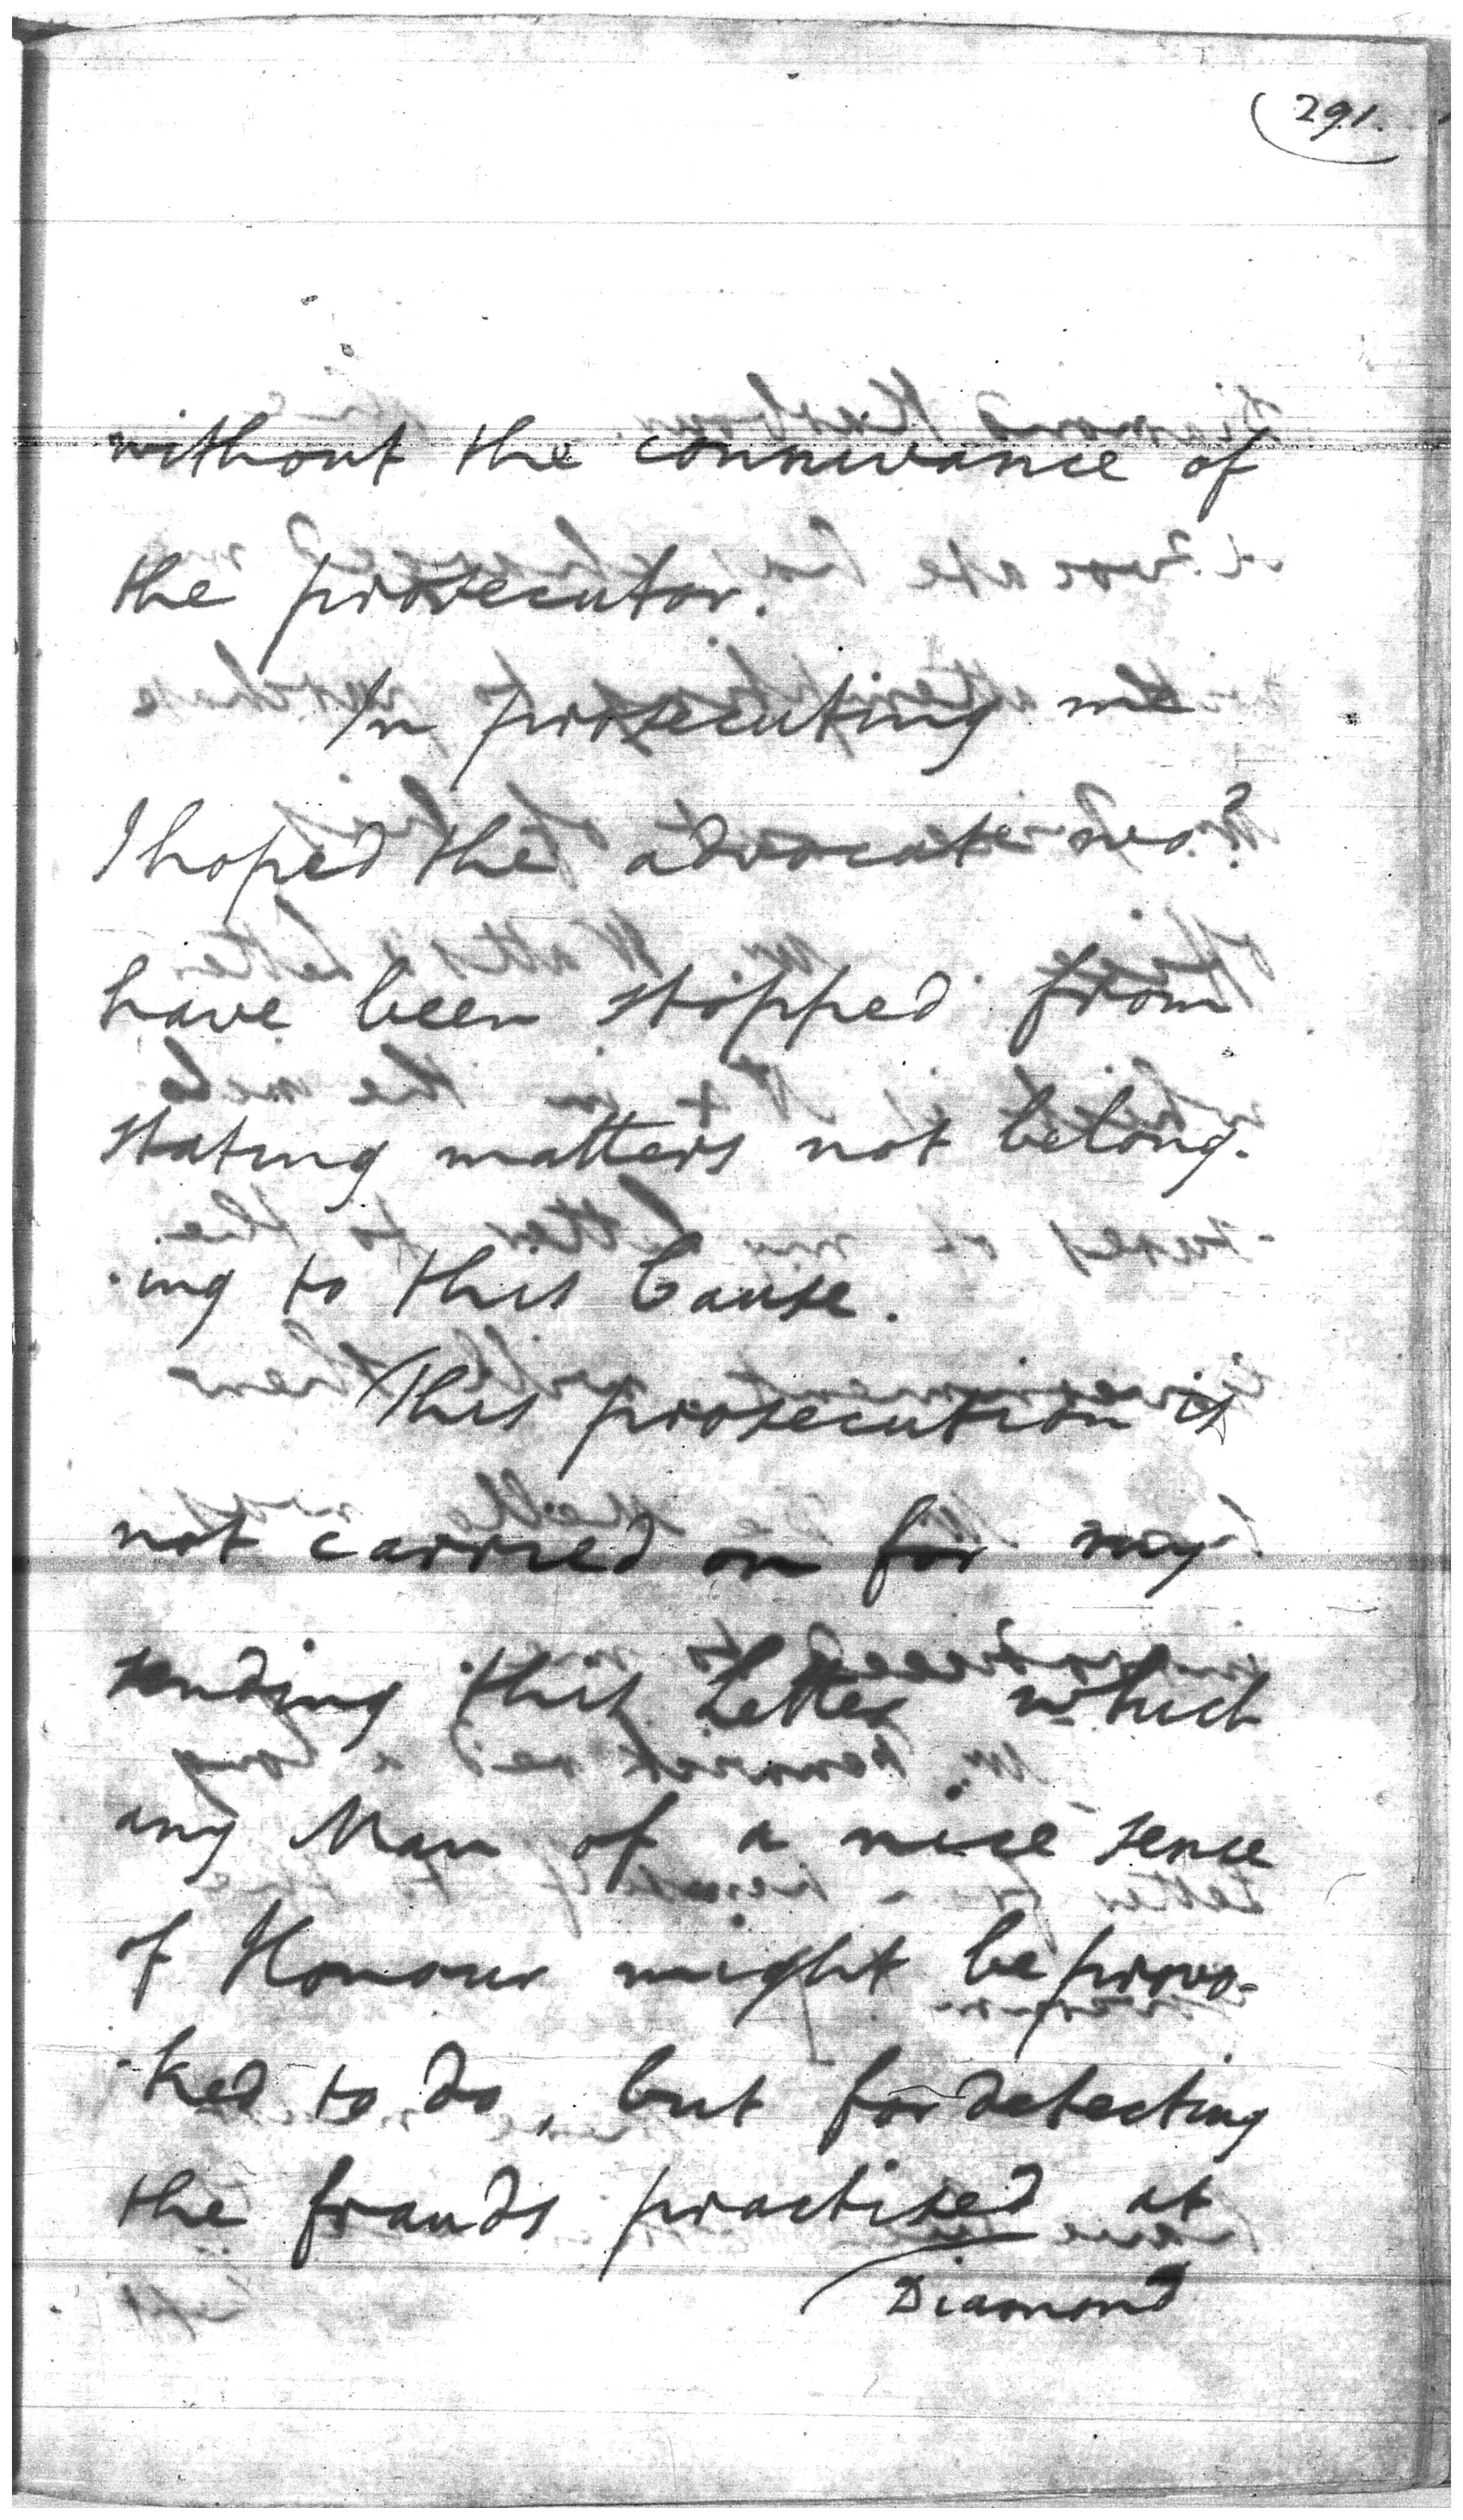 291.
without the connivance of
the prosecutor.
In prosecuting me
I hoped the advocate wo.d
have been stopped from
stating matters not belong-
-ing to this Cause.
This prosecution is
not carried on for my
sending this Letter which
any Man of a nice sence
of Honour might be provo-
-ked to do, but for detecting
the frauds practised at
Diamond